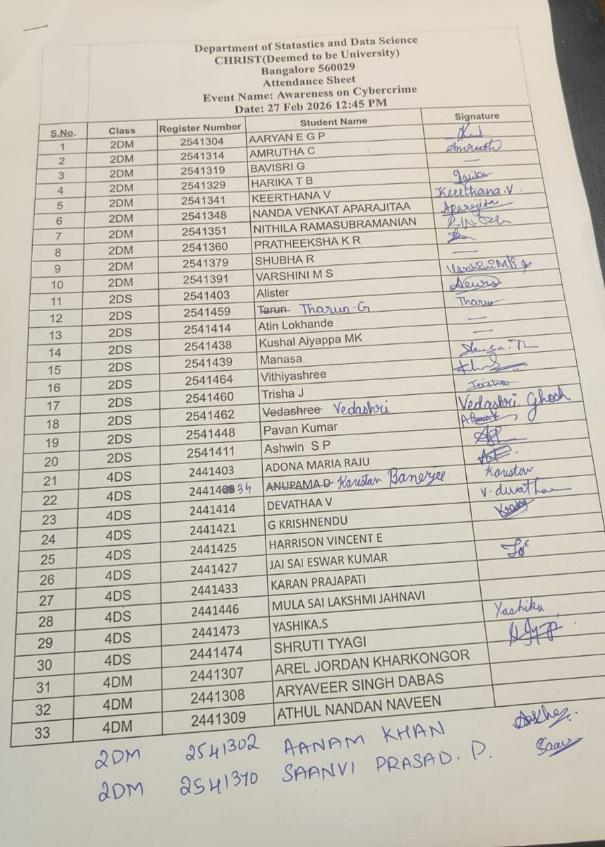 Department of Statastics and Data Science
CHRIST(Deemed to be University)
Bangalore 560029
Attendance Sheet
Event Name: Awareness on Cybercrime
Date: 27 Feb 2026 12:45 PM
S.No. Class Register Number Student Name Signature
1 2DM 2541304 AARYAN E G P
2 2DM 2541314 AMRUTHA C Amrutha
3 2DM 2541319 BAVISRI G —
4 2DM 2541329 HARIKA T B
5 2DM 2541341 KEERTHANA V Keerthana.V.
6 2DM 2541348 NANDA VENKAT APARAJITAA Aparajita
7 2DM 2541351 NITHILA RAMASUBRAMANIAN
8 2DM 2541360 PRATHEEKSHA K R
9 2DM 2541379 SHUBHA R —
10 2DM 2541391 VARSHINI M S Varshini M S
11 2DS 2541403 Alister
12 2DS 2541459 Tarun Tharun G Tharun
13 2DS 2541414 Atin Lokhande —
14 2DS 2541438 Kushal Aiyappa MK —
15 2DS 2541439 Manasa
16 2DS 2541464 Vithiyashree
17 2DS 2541460 Trisha J
18 2DS 2541462 Vedashree Vedashri Vedashri Ghosh
19 2DS 2541448 Pavan Kumar
20 2DS 2541411 Ashwin S P
21 4DS 2441403 ADONA MARIA RAJU
22 4DS ANUPAMA D Banerjee
23 4DS 2441414 DEVATHAA V
24 4DS 2441421 G KRISHNENDU
25 4DS 2441425 HARRISON VINCENT E
26 4DS 2441427 JAI SAI ESWAR KUMAR
27 4DS 2441433 KARAN PRAJAPATI
28 4DS 2441446 MULA SAI LAKSHMI JAHNAVI
29 4DS 2441473 YASHIKA.S Yashika
30 4DS 2441474 SHRUTI TYAGI
31 4DM 2441307 AREL JORDAN KHARKONGOR
32 4DM 2441308 ARYAVEER SINGH DABAS
33 4DM 2441309 ATHUL NANDAN NAVEEN
2DM 2541302 AANAM KHAN
2DM 2541370 SAANVI PRASAD. P.